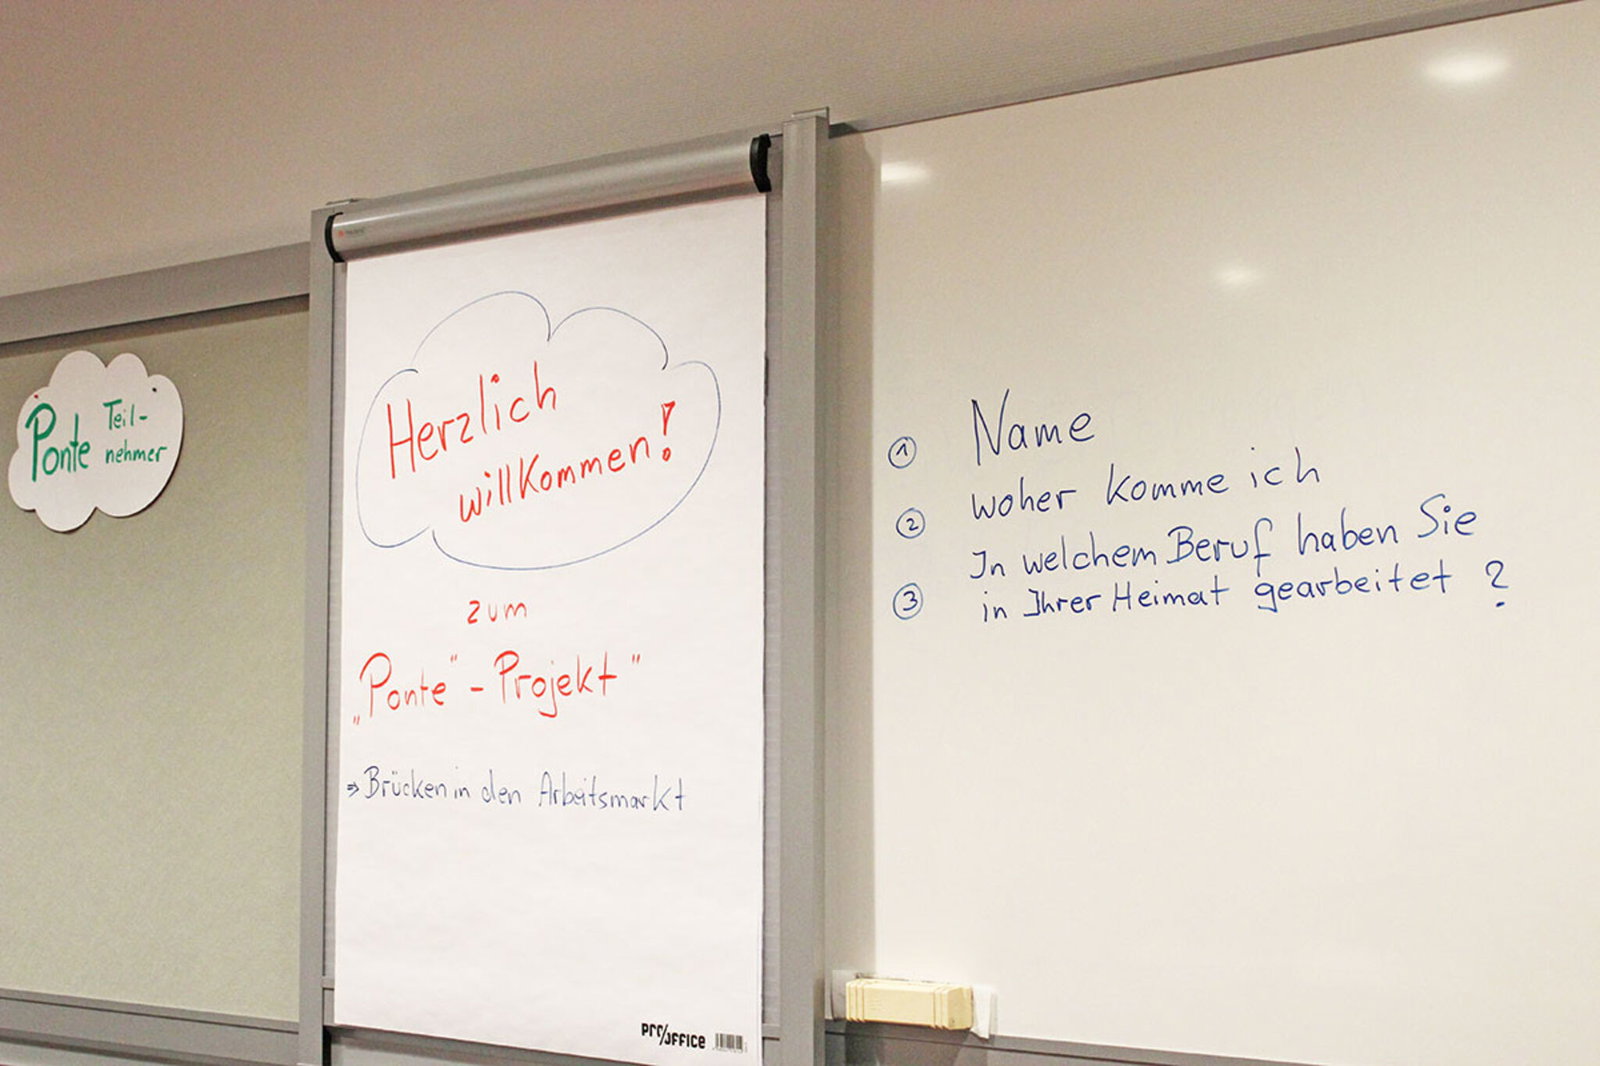 Ponte Teil-
nehmer
Herzlich
willkommen!
zum
„Ponte"-Projekt"
⇒ Brücken in den Arbeitsmarkt
pro/office
① Name
② woher komme ich
③ In welchem Beruf haben Sie
in Ihrer Heimat gearbeitet ?